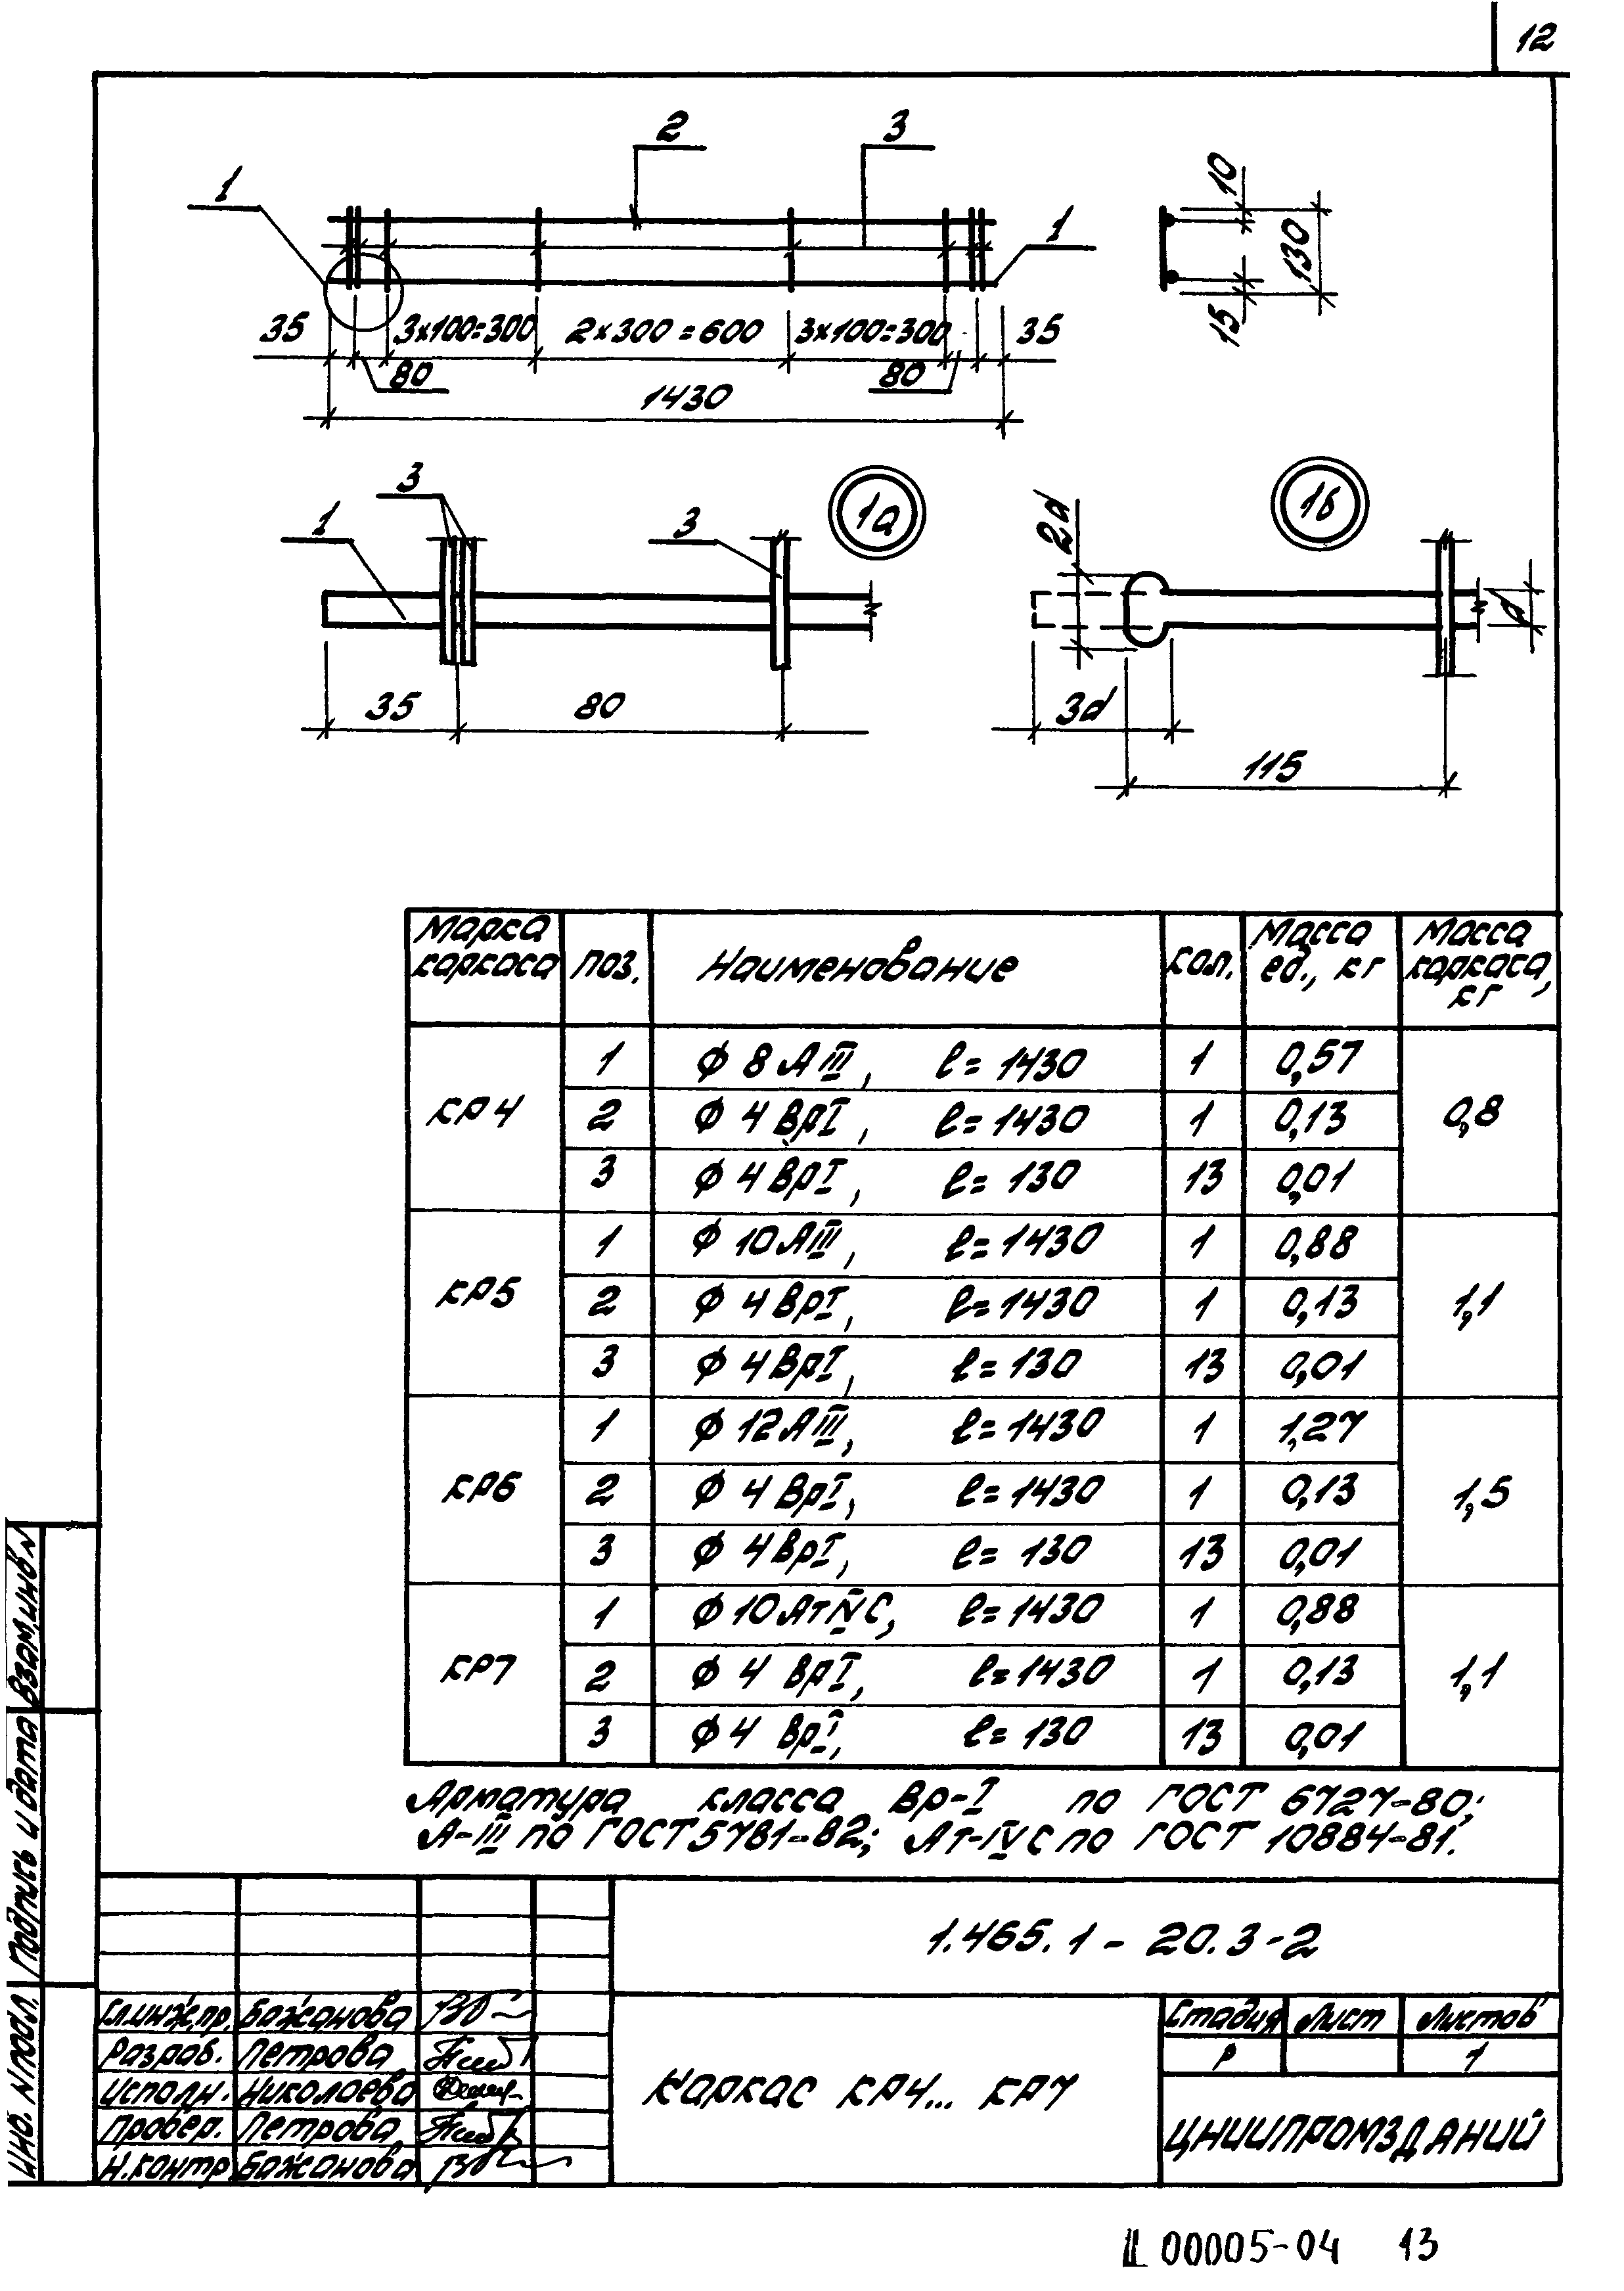 12
2
3
1
1
10
130
15
35
3×100=300
2×300=600
3×100=300
35
80
80
1430
3
1
3
1а
1б
2d
d
35
80
3d
115
Марка каркаса
поз.
Наименование
кол.
Масса ед., кг
Масса каркаса, кг
КР4
1 ϕ 8 АIII, ℓ= 1430 1 0,57
2 ϕ 4 ВрI, ℓ= 1430 1 0,13
3 ϕ 4 ВрI, ℓ= 130 13 0,01
0,8
КР5
1 ϕ 10 АIII, ℓ= 1430 1 0,88
2 ϕ 4 ВрI, ℓ= 1430 1 0,13
3 ϕ 4 ВрI, ℓ= 130 13 0,01
1,1
КР6
1 ϕ 12 АIII, ℓ= 1430 1 1,27
2 ϕ 4 ВрI, ℓ= 1430 1 0,13
3 ϕ 4 ВрI, ℓ= 130 13 0,01
1,5
КР7
1 ϕ 10 АтIVС, ℓ= 1430 1 0,88
2 ϕ 4 ВрI, ℓ= 1430 1 0,13
3 ϕ 4 ВрI, ℓ= 130 13 0,01
1,1
Арматура класса Вр-I по ГОСТ 6727-80;
А-III по ГОСТ 5781-82; Ат-IVС по ГОСТ 10884-81.
1.465.1 - 20.3-2
Гл.инж.пр. Бажанова
Разраб. Петрова
Исполн. Николаева
Провер. Петрова
Н.контр. Бажанова
Каркас КР4... КР7
Стадия Лист Листов
Р 1
ЦНИИПРОМЗДАНИЙ
Взам.инв.N
Подпись и дата
Инв. N подл.
Ц 00005-04 13